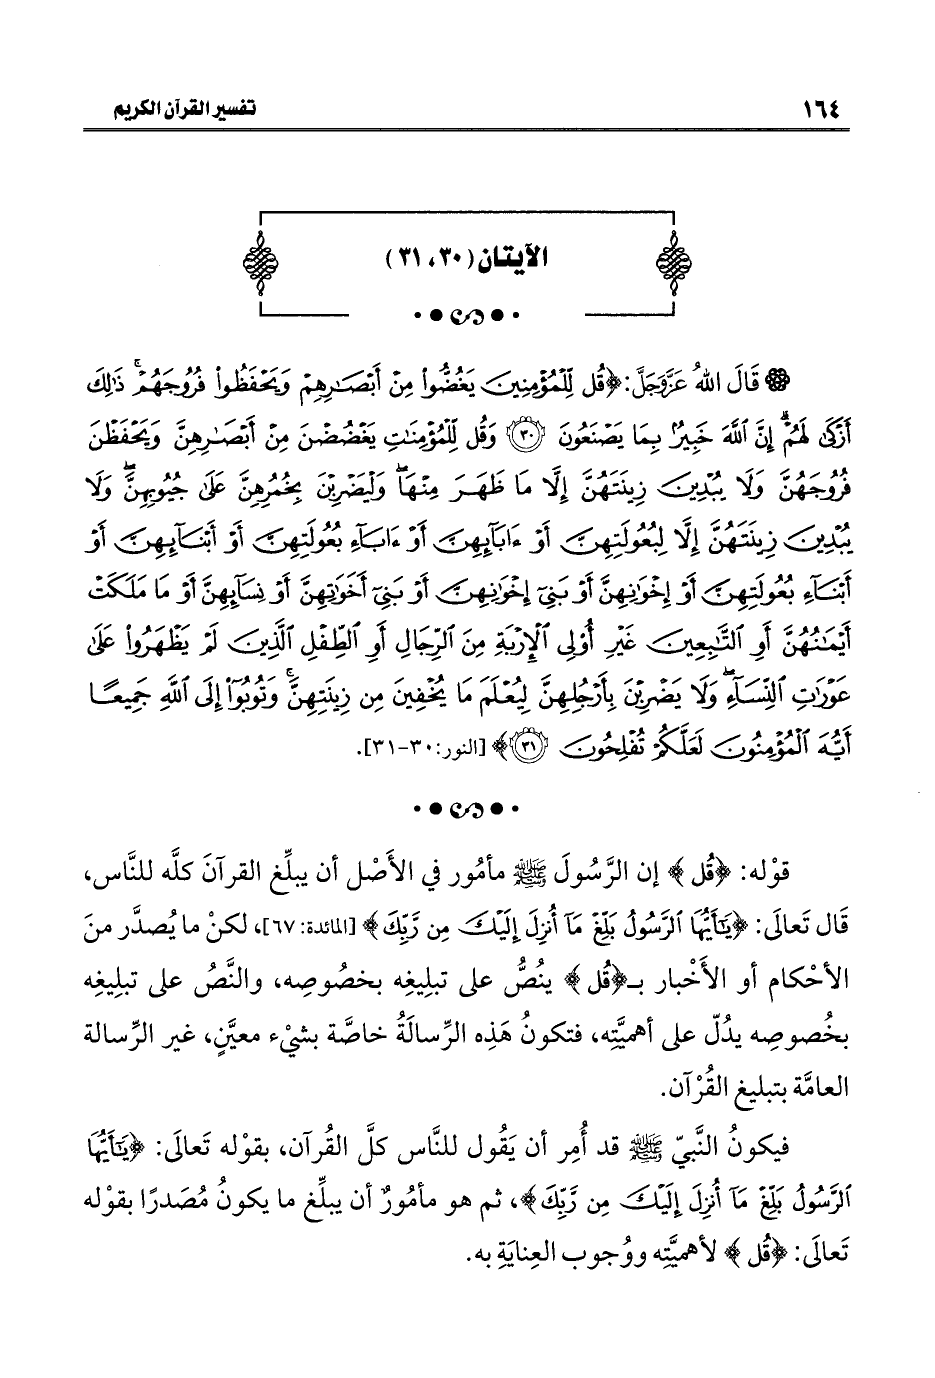 ١٦٤ تفسير القرآن الكريم
الآيتان (٣٠، ٣١)
قَالَ اللهُ عَزَّوَجَلَّ: ﴿قُل لِّلْمُؤْمِنِينَ يَغُضُّوا۟ مِنْ أَبْصَٰرِهِمْ وَيَحْفَظُوا۟ فُرُوجَهُمْ ۚ ذَٰلِكَ
أَزْكَىٰ لَهُمْ ۗ إِنَّ ٱللَّهَ خَبِيرٌۢ بِمَا يَصْنَعُونَ ﴿٣٠﴾ وَقُل لِّلْمُؤْمِنَٰتِ يَغْضُضْنَ مِنْ أَبْصَٰرِهِنَّ وَيَحْفَظْنَ
فُرُوجَهُنَّ وَلَا يُبْدِينَ زِينَتَهُنَّ إِلَّا مَا ظَهَرَ مِنْهَا ۖ وَلْيَضْرِبْنَ بِخُمُرِهِنَّ عَلَىٰ جُيُوبِهِنَّ ۖ وَلَا
يُبْدِينَ زِينَتَهُنَّ إِلَّا لِبُعُولَتِهِنَّ أَوْ ءَابَآئِهِنَّ أَوْ ءَابَآءِ بُعُولَتِهِنَّ أَوْ أَبْنَآئِهِنَّ أَوْ
أَبْنَآءِ بُعُولَتِهِنَّ أَوْ إِخْوَٰنِهِنَّ أَوْ بَنِىٓ إِخْوَٰنِهِنَّ أَوْ بَنِىٓ أَخَوَٰتِهِنَّ أَوْ نِسَآئِهِنَّ أَوْ مَا مَلَكَتْ
أَيْمَٰنُهُنَّ أَوِ ٱلتَّٰبِعِينَ غَيْرِ أُو۟لِى ٱلْإِرْبَةِ مِنَ ٱلرِّجَالِ أَوِ ٱلطِّفْلِ ٱلَّذِينَ لَمْ يَظْهَرُوا۟ عَلَىٰ
عَوْرَٰتِ ٱلنِّسَآءِ ۖ وَلَا يَضْرِبْنَ بِأَرْجُلِهِنَّ لِيُعْلَمَ مَا يُخْفِينَ مِن زِينَتِهِنَّ ۚ وَتُوبُوٓا۟ إِلَى ٱللَّهِ جَمِيعًا
أَيُّهَ ٱلْمُؤْمِنُونَ لَعَلَّكُمْ تُفْلِحُونَ ﴿٣١﴾﴾ [النور: ٣٠-٣١].
قوْله: ﴿قُل﴾ إن الرَّسُولَ ﷺ مأمُور في الأَصْل أن يبلِّغ القرآنَ كلَّه للنَّاس،
قَال تَعالَى: ﴿يَٰٓأَيُّهَا ٱلرَّسُولُ بَلِّغْ مَآ أُنزِلَ إِلَيْكَ مِن رَّبِّكَ﴾ [المائدة: ٦٧]، لكنْ ما يُصدَّر منَ
الأحْكام أو الأَخْبار بـ﴿قُل﴾ ينُصُّ على تبلِيغِه بخصُوصِه، والنَّصُّ على تبليغِه
بخُصوصِه يدُلّ على أهميَّتِه، فتكونُ هَذِه الرِّسالَةُ خاصَّة بشيْء معيَّنٍ، غير الرِّسالة
العامَّة بتبليغ القُرْآن.
فيكونُ النَّبيّ ﷺ قد أُمِر أن يَقُول للنَّاس كلَّ القُرآن، بقوْله تَعالَى: ﴿يَٰٓأَيُّهَا
ٱلرَّسُولُ بَلِّغْ مَآ أُنزِلَ إِلَيْكَ مِن رَّبِّكَ﴾، ثم هو مأمُورٌ أن يبلِّغ ما يكونُ مُصَدرًا بقوْله
تَعالَى: ﴿قُل﴾ لأهميَّتِه ووُجوب العِنايَةِ به.